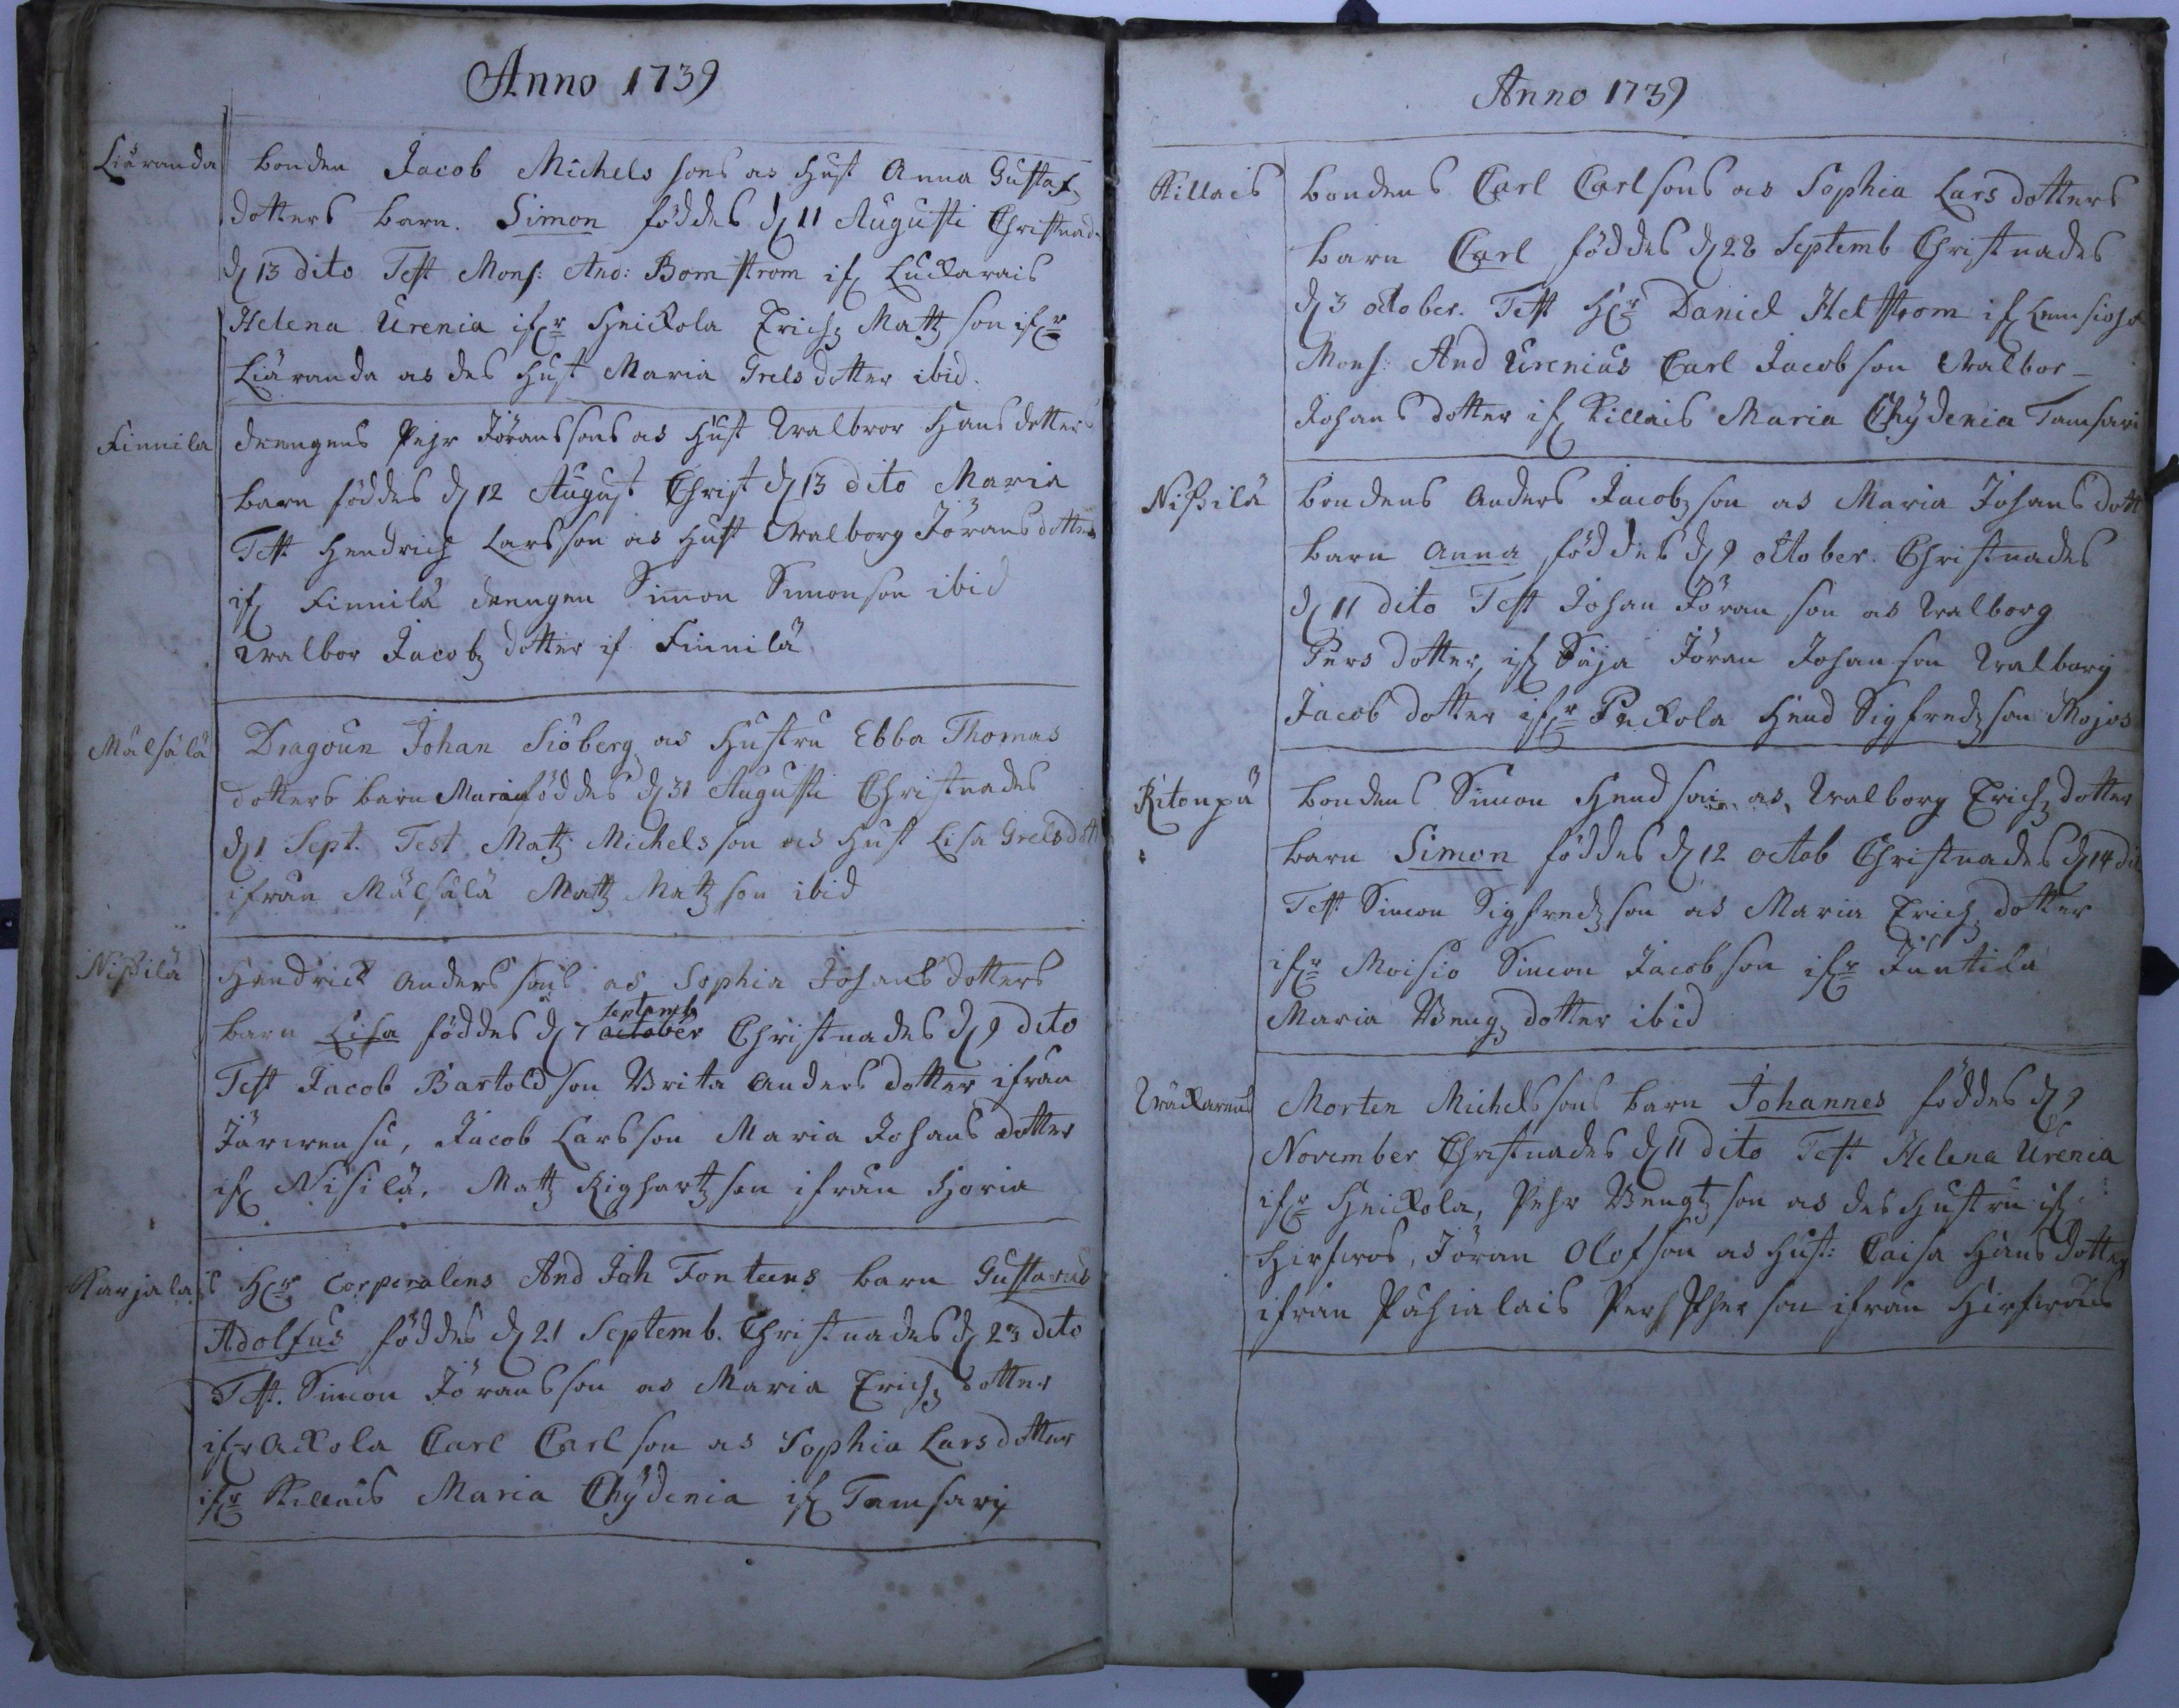 Anno 1739
Liäranda bonden Jacob Michels sons as hust Anna Gustafz
dotters barn. Simon föddes d 11 Augusti Christnad
d 13 dito Test Mons: And: Bomstrom if Luckarais
Helena Urenia ifr Heickola Erich Matz son ifr
Liäranda as des hust Maria Grels dotter ibid.
Finnila drengens Pehr Jöranssons as hust Walbror Hansdotters
barn föddes d 12 August Christ d 13 dito Maria
Test Hendrich Larsson as hust Walborg Jöransdotter
if Finnilä drengen Simon Simonson ibid
Walbor Jacobz dotter if Finnilä
Mälsälä Dragoun Johan Siöberg as hustru Ebba Thomas
dotters barn Maria föddes d 31 Augusti Christnades
d 1 Sept. Test Matz Michelsson as hust Lisa Grelsdott
ifrån Mälsälä Matz Matz son ibid
Nißilä Hendrick Anderssons as Sophia Johansdotters
Septemb
barn Lisa föddes d 7 october Christnades d 9 dito
Test Jacob Bartoldson Brita Anders dotter ifrån
Järwensu, Jacob Larsson Maria Johans dotter
if Nisilä, Matz Righartz son ifrån Horia
Karjalais Hr Corporalens And Joh Fonteens barn Gustavus
Adolfus föddes d 21 Septemb. Christnades d 23 dito
Test. Simon Jöransson as Maria Erichz dotter
ifr Ackola Carl Carlson as Sophia Larsdotter
ifr Killais Maria Chydenia if Tamsari
Anno 1739
Killais bondens Carl Carlsons as Sophia Lars dotters
barn Carl föddes d 28 Septemb Christnades
d 3 october. Test Hr Daniel Helstrom if
Mons: And Urenius Carl Jacobson Walbor-
Johans dotter if Killais Maria Chydenia Tamsari
Nißilä bondens Anders Jacobz son as Maria Johans dott
barn Anna föddes d 9 october. Christnades
d 11 dito Test Johan Jöran son as Walborg
Pers dotter, if Säja Jöran Johanson Walborg
Jacob dotter ifr Peckola Hend Sigfredz son Mojos
Ritonpä bondens Simon Hendson as Walborg Erichz dotter
barn Simon föddes d 12 octob Christnades d 14 dit
Test Simon Sigfredz son as Maria Erichz dotter
ifr Moisio Simon Jacobson ifr Juntila
Maria Bengz dotter ibid
Wäckarens Morten Michelssons barn Johannes föddes d 9
November Christnades d 11 dito Test Helena Urenia
ifr Heickola, Pehr Bengtz son as des hustru if
Hirfwos, Jöran Olofson as hust: Caisa Hans dotter
ifrån Påhialais Perh Pher son ifrån Hirfwois